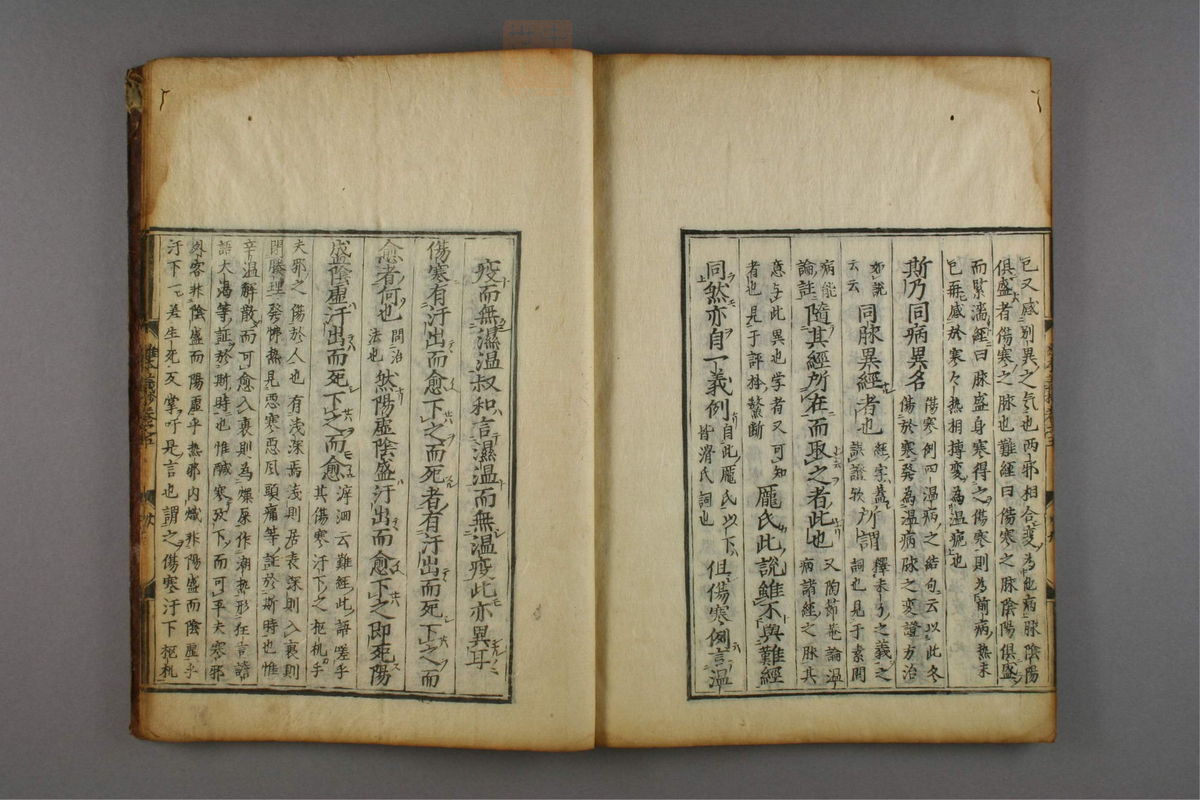 已又感別異之気也両邪相合変為他病脉陰陽
俱盛者傷寒之脉也難經曰傷寒之脉陰陽俱盛
而緊濇經曰脉盛身寒得之傷寒則為前病熱未
已再感於寒々熱相搏変為温瘧也
斯乃同病異名
陽寒例四温病之結句云以此冬
傷於寒発為温病脉之変證方治
如說
云云
同脉異經者也
所謂
釋未了之義之
詞也見于素問
病能
論註
隨其經所在而取之者此也
又陶節菴論温
病諸經之脉其
意与此異也学者又可知
者也見于評林鰲断
龐氏此說雖不與難經
同然亦自一義例
自此龐氏以下
皆滑氏詞也
但傷寒例言温
疫而無濕温叔和言濕温而無温疫此亦異耳
傷寒有汗出而愈下之而死者有汗出而死下之而
愈者何也
問治
法也
然陽虛陰盛汗出而愈下之即死陽
盛陰虛汗出而死下之而愈
滓洄云難經此語嗟乎
其傷寒汗下之枢机乎
夫邪之傷於人也有浅深焉浅則居表深則入裏則
閉腠理発怫熱見悪寒悪風頭痛等証於斯時也惟
辛温解散而可愈入裏則為燥屎作潮熱形狂言譫
語大渇等証於斯時也惟鹹寒攻下而可平夫寒邪
外客非陰盛而陽虛乎熱邪内熾非陽盛而陰虛乎
汗下一差生死反掌吁是言也謂之傷寒汗下枢机